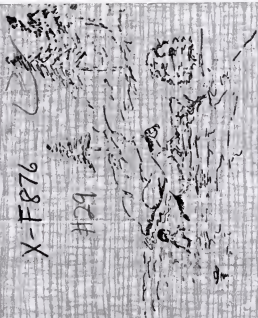 X-F876
#29